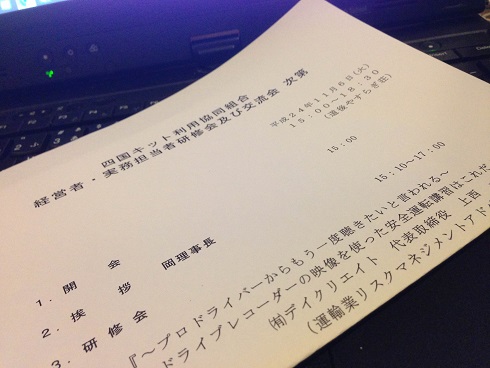 四国キット利用協同組合
経営者・実務担当者研修会及び交流会 次第
平成24年11月6日(火)
15:00~18:30
(道後やすらぎ荘)
15:00
1. 開 会
2. 挨 拶 岡理事長
3. 研修会 15:10~17:00
『~プロドライバーからもう一度聴きたいと言われる~
ドライブレコーダーの映像を使った安全運転講習はこれだ
㈲デイクリエイト 代表取締役 上西
(運輸業リスクマネジメントアド